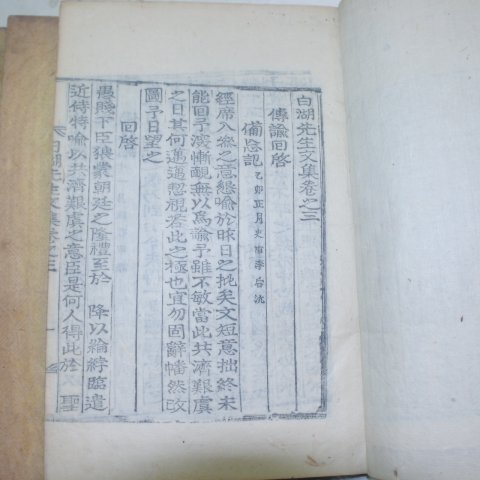 白湖先生文集卷之三
傳諭回啓
備忘記 乙卯正月史官李后沆
經席入參之意懇喻於昨日之批矣文短意拙終未
能回予深慚靦無以爲諭予雖不敏當此共濟艱虞
之日其何邁邁恝視若此之極也宜勿固辭幡然改
圖予日望之
回啓
愚賤下臣猥蒙朝廷之隆禮至於 降以綸綍臨遣
近侍特喻以共濟艱虞之意臣是何人得此於 聖
白湖先生文集卷之三 一